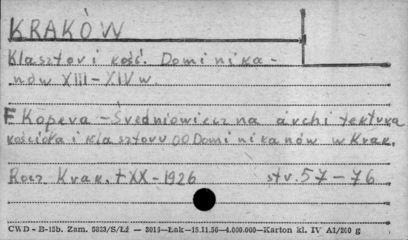 KRAKÓW
Klasztor i kość. Dominika-
nów XIII-XIV w
F Kopera - Średniowieczna architektura
kościoła i klasztoru OO Dominikanów w Krak.
Rocz Krak. t XX-1926 str. 57-76
CWD - B-15b. Zam. 5823/S/Łi - 3015-Łak-15.11.56-4.000.000-Karton kl. IV A1/200 g